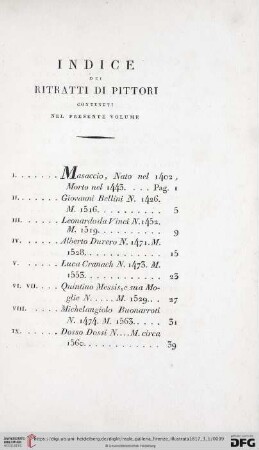 INDICE
DEI
RITRATTI DI PITTORI
CONTENUTI
NEL PRESENTE VOLUME
I. . . . . . . . Masaccio, Nato nel 1402,
Morto nel 1443. . . . . Pag. 1
II. . . . . . . . Giovanni Bellini N. 1426.
M. 1516. . . . . . . . . . . 5
III. . . . . . . Leonardo da Vinci N. 1452.
M. 1519. . . . . . . . . . . 9
IV. . . . . . . Alberto Durero N. 1471. M.
1528. . . . . . . . . . . . 15
V. . . . . . . . Luca Cranach N. 1473. M.
1553. . . . . . . . . . . . 23
VI. VII. . . . Quintino Messis, e sua Mo-
glie N. . . . . M. 1529. . . 27
VIII. . . . . . Michelangiolo Buonarroti
N. 1474. M. 1563. . . . . . 31
IX. . . . . . . Dosso Dossi N. . . . M. circa
1560. . . . . . . . . . . . 39
UNIVERSITÄTS-
BIBLIOTHEK
HEIDELBERG
DFG